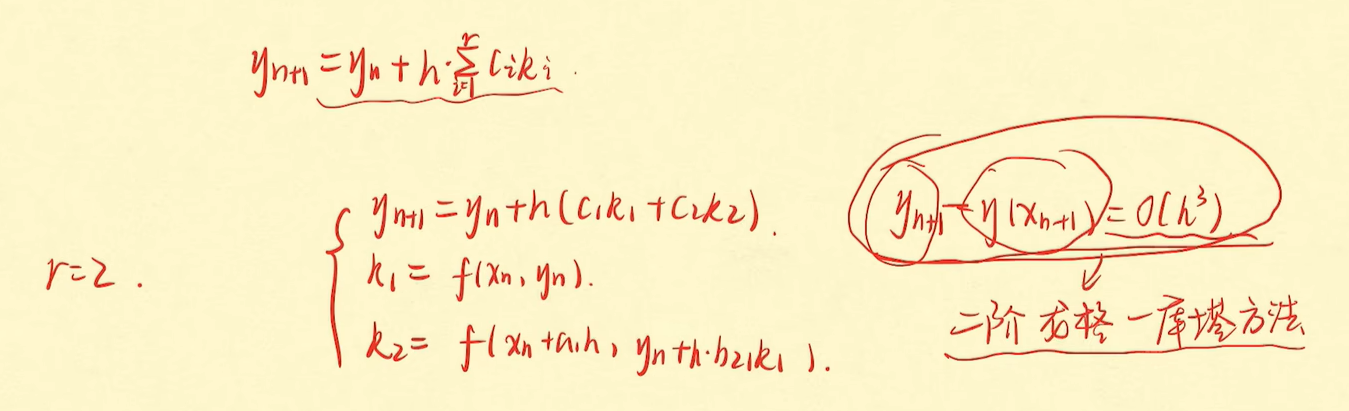 yₙ₊₁ = yₙ + h·∑ᵢ₌₁ʳ cᵢkᵢ.
r=2.
yₙ₊₁ = yₙ + h(c₁k₁ + c₂k₂).
k₁ = f(xₙ, yₙ).
k₂ = f(xₙ + a₁h, yₙ + h·b₂₁k₁).
yₙ₊₁ - y(xₙ₊₁) = O(h³)
二阶龙格-库塔方法